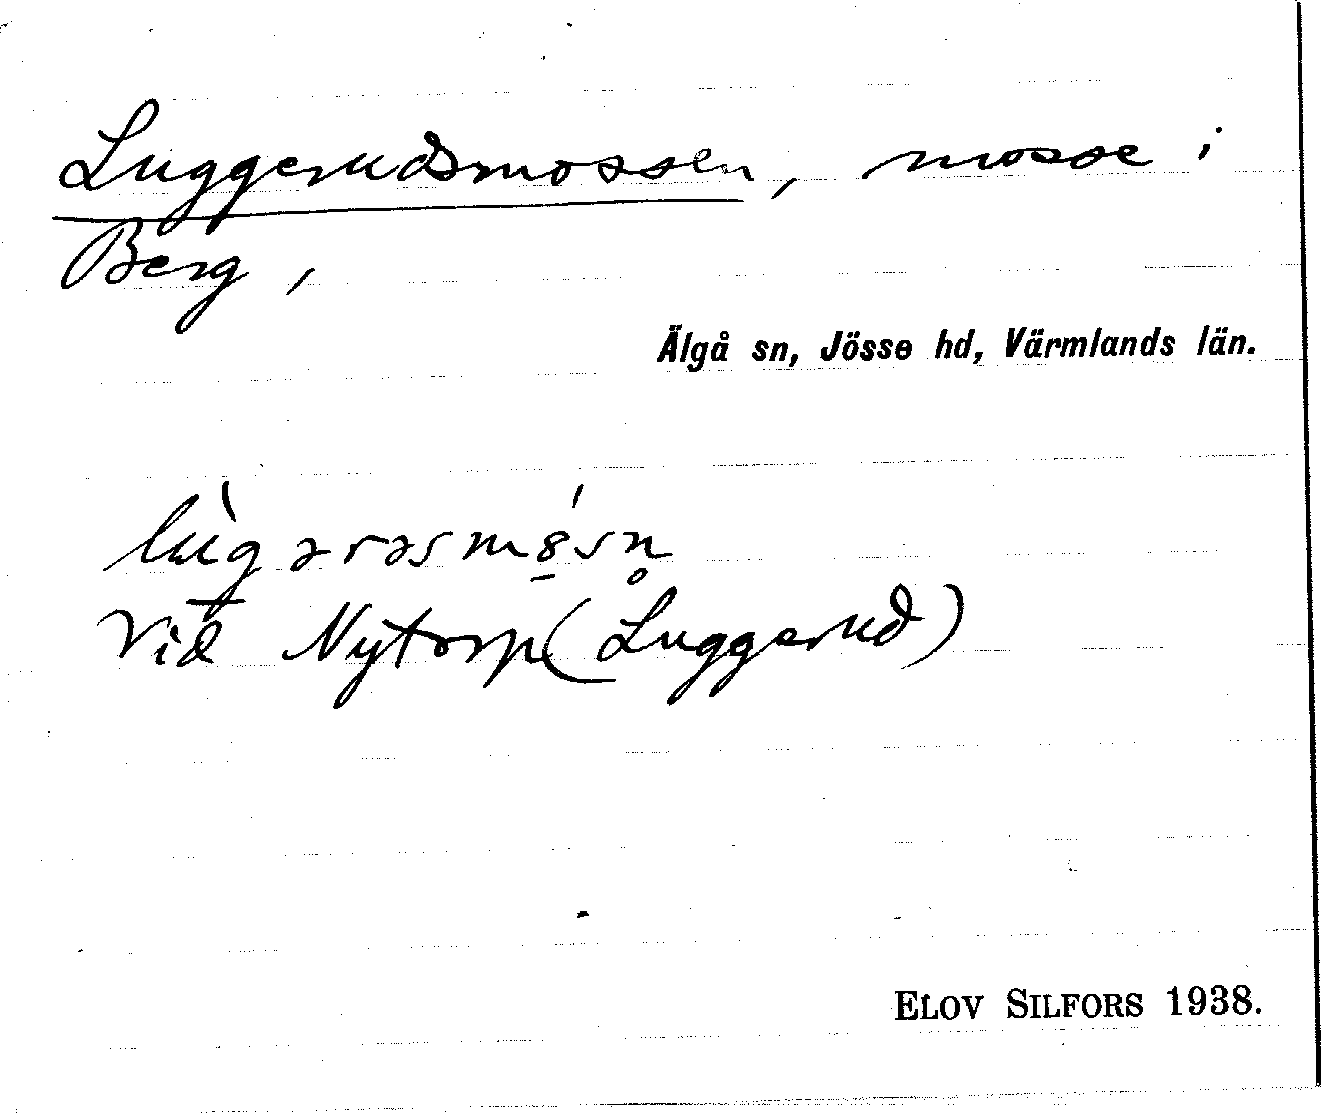 Luggerudsmossen, mosse i
Berg,
Älgå sn, Jösse hd, Värmlands län.
lùg̱ərəsmȣ̱́sn̥
Vid Nytorp (Luggerud)
ELOV SILFORS 1938.